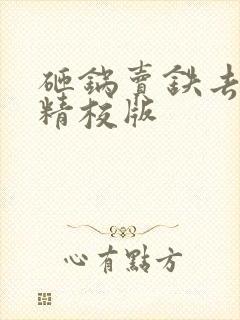 砸鍋賣鉄去
精校版
心有點方